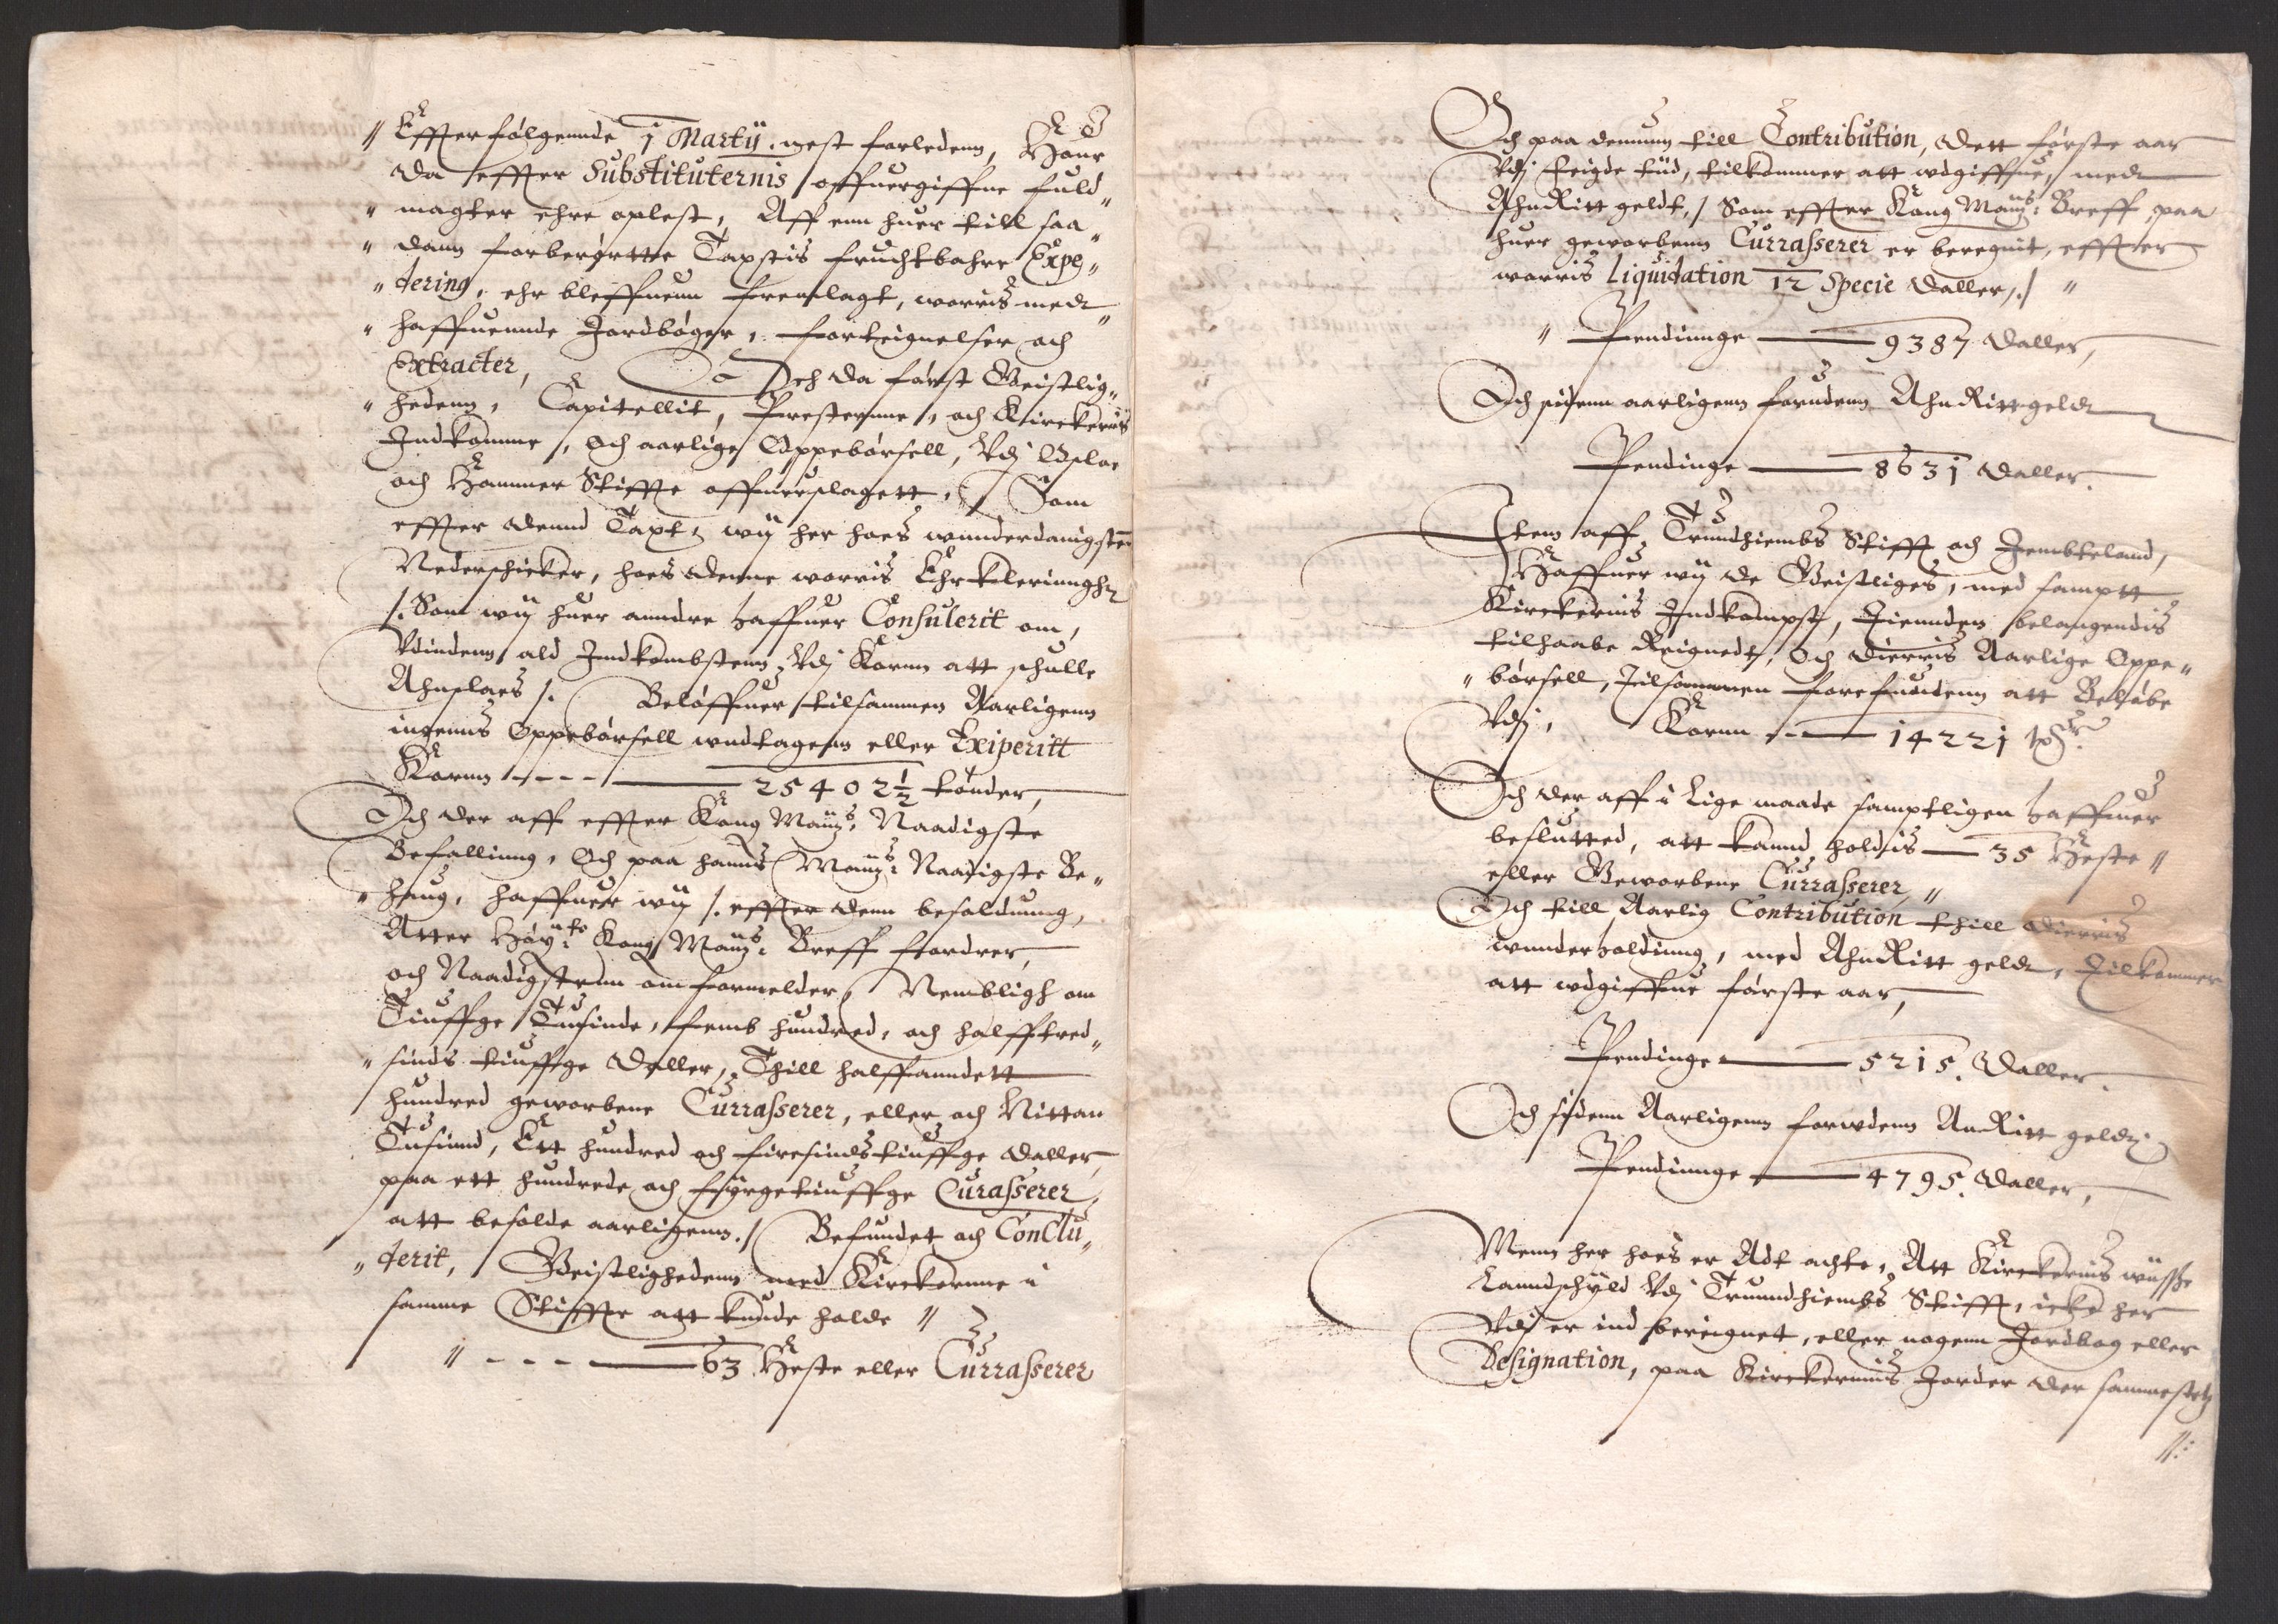 " Effterfølgennde 1 Martij. nest forledenn, Hour
da effter Substituternis offuergiffne fuld"
" magter ehre oplest, Aff enn huer till saa"
" dann forberørtte Taxtis fruchtbahre Expe"
" dering, ehr bleffuenn fremlagt, worris med"
" haffuennde Jordbøger, forteignelser och
Extracter, Och da først Geistlig"
" hedenn, Capitellit, Presternne, och Kirckernis
Indkomme, Och aarlige Oppebørsell, Vdj Opslae
och Hammer Stiffte offuerslagett, Som
effter dennd Taxt, wij her hoes wnnderdanigste
Nederschicker, hoes denne worris Ehrkleringh
/. Som wij huer anndre haffuer Consulerit om,
Vdindenn ald Indkombstenn Vdj Kornn att schulle
Ahnslaes /. Beløffuer tilsammen Aarligenn
ingenns Oppebørsell wndtagenn eller Exiperitt
Kornn ---- 25402½ tønder,
Och der aff effter Kong Maÿtz: Naadigste
Befallinng, Och paa hanns Maÿtz: Naadigste Be"
" haug, haffuer wij /. effter denn besoldnung,
Atter Høÿ: Kong Maÿtz: Breff fordrer,
och Naadigstenn om formelder, Nembligh om
Tiuffge Tusinde, femb hundred, och halfftred"
" sinds tiuffge Daller, Thill halffanndett
hundred geworbene Currasserer, eller och Nittan
Tusinnd, Ett hundred och firesindstiuffge daller,
paa ett hundrede och fyrgetiuffge Curasserer,
att besolde aarligenn./ Befundet och Conclu"
" derit, Geistlighedenn med Kirckernne i
samme Stiffte att kunde holde "
" ---- 63 Heste eller Currasserer
Och paa dennum till Contribution, dett første aar
Vdj feigde tiid, tilkommer att wdgiffue, med
AhnRitt geldt, / Som effter Kong Maÿtz: Breff paa
huer geworbenn Currasserer er beregnit, effter
worris Liquidation 12 Specie Daller,./ "
" Pendinnge —— 9387 Daller,
Och sidenn aarligenn forudenn AhnRittgeld
Pendinge —— 8631 Daller.
Item aff Trundhiembs Stifft och Jembteland,
Haffuer wij de Geistliges, med samptt
Kirckernis Indkompst, Tiennden belangendis
tilhaabe Reignedt, Och dierris Aarlige Oppe"
" børsell, tilsammen forefundenn att Beløbe
Vdj, Kornn —— 14221 tdr.
Och der aff i Lige maade samptligen haffuer
beslutted, att kannd holdis — 35 Heste "
eller Geworbene Currasserer, "
Och till Aarlig Contribution thill dierris
wnnderholdinng, med AhnRitt geld, Tilkommer
att wdgiffue første aar,
Pendinge —— 5215. Daller.
Och sidenn Aarligenn forwdenn AnRitt geldt
Pendinnge —— 4795. Daller,
Menn her hoes er Adt achte, Att Kirckernis wisse
Lanndschyld Vdj Trunndhiembs Stifft, icke her
Vdj er ind bereignet, eller nogenn Jordbog eller
Designation, paa Kirckernnis Jorder der sammestetz
//: